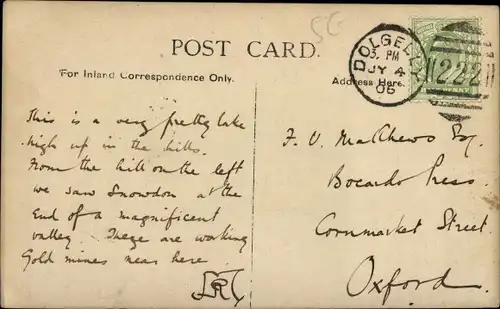 SG
POST CARD.
For Inland Correspondence Only.
Address Here.
DOLGELLEY
3. PM
JY 4
05
222
This is a very pretty lake
high up in the hills.
From the hill on the left
we saw Snowdon at the
End of a magnificent
valley. There are working
Gold mines near here.
F. V. Matthews Esq.
Bocardo Press.
Cornmarket Street.
Oxford.